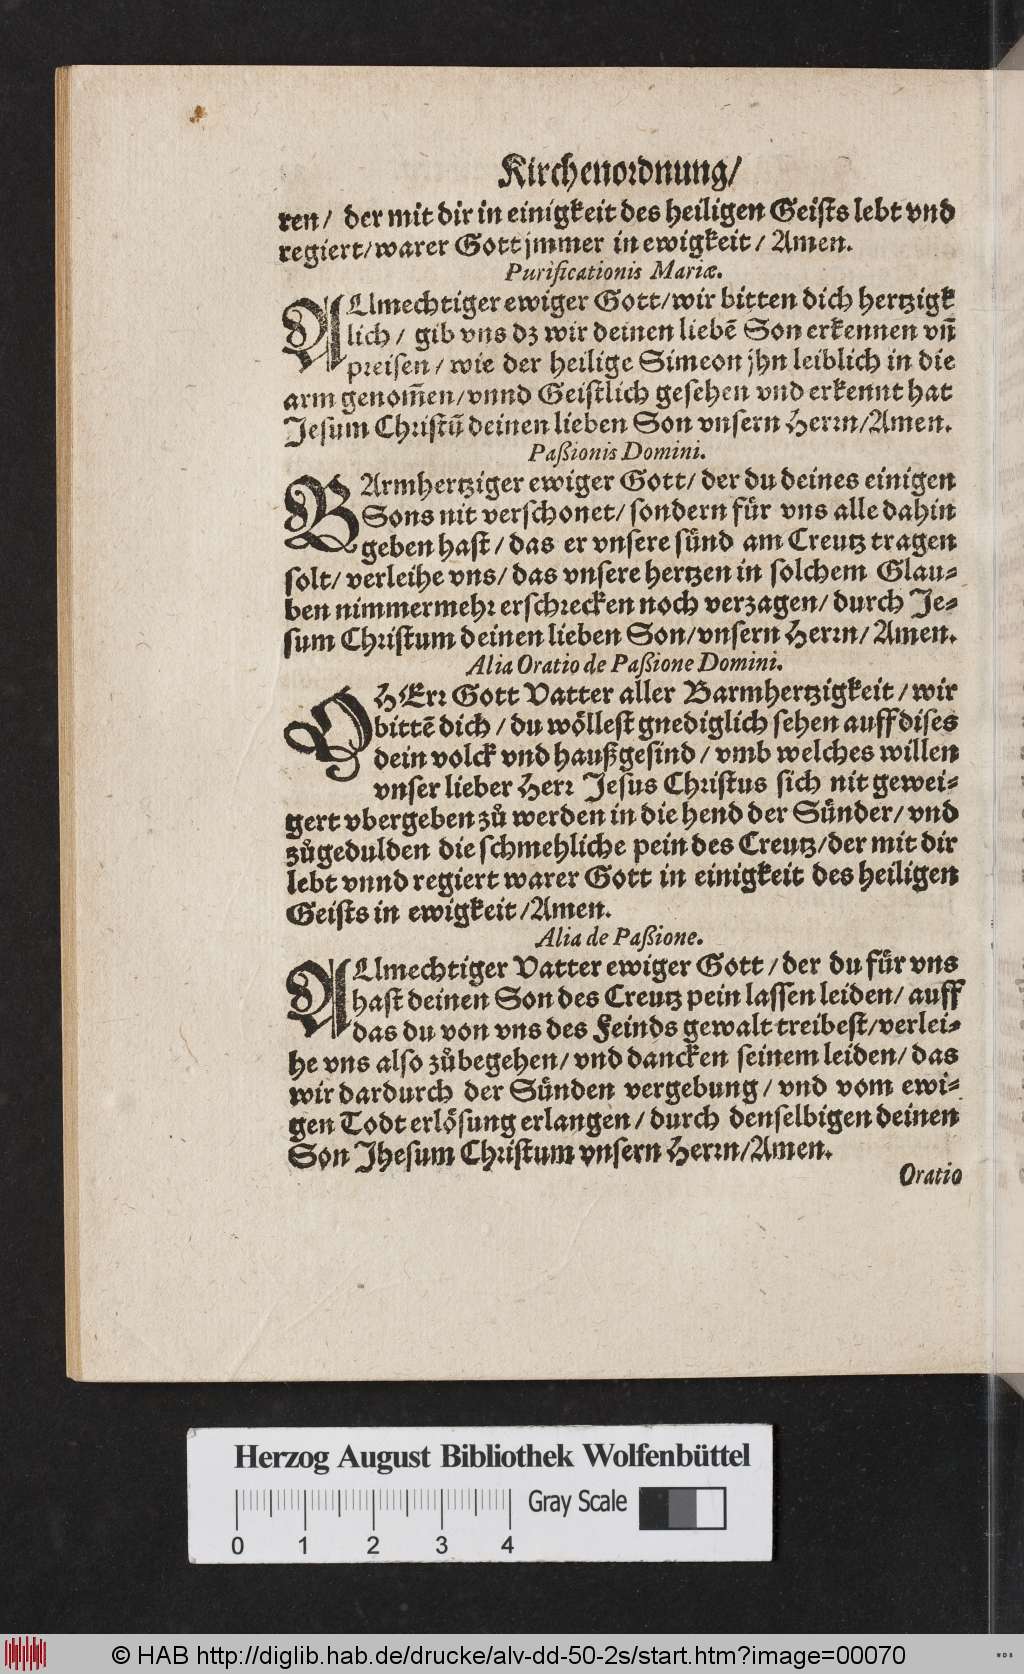 Kirchenordnung/
ren/ der mit dir in einigkeit des heiligen Geists lebt vnd
regiert/warer Gott jmmer in ewigkeit/ Amen.
Purificationis Mariæ.
ALlmechtiger ewiger Gott/wir bitten dich hertzigk
lich/ gib vns dz wir deinen liebẽ Son erkennen vñ
preisen/ wie der heilige Simeon jhn leiblich in die
arm genom̃en/vnnd Geistlich gesehen vnd erkennt hat
Jesum Christũ deinen lieben Son vnsern Herrn/Amen.
Paßionis Domini.
BArmhertziger ewiger Gott/ der du deines einigen
Sons nit verschonet/ sondern für vns alle dahin
geben hast/ das er vnsere sünd am Creutz tragen
solt/ verleihe vns/ das vnsere hertzen in solchem Glau-
ben nimmermehr erschrecken noch verzagen/ durch Je-
sum Christum deinen lieben Son/vnsern Herrn/ Amen.
Alia Oratio de Paßione Domini.
OHErr Gott Vatter aller Barmhertzigkeit/ wir
bittẽ dich/ du wöllest gnediglich sehen auff dises
dein volck vnd haußgesind/ vmb welches willen
vnser lieber Herr Jesus Christus sich nit gewei-
gert vbergeben zů werden in die hend der Sünder/ vnd
zůgedulden die schmehliche pein des Creutz/der mit dir
lebt vnnd regiert warer Gott in einigkeit des heiligen
Geists in ewigkeit/Amen.
Alia de Paßione.
ALlmechtiger Vatter ewiger Gott/ der du für vns
hast deinen Son des Creutz pein lassen leiden/ auff
das du von vns des Feinds gewalt treibest/verlei-
he vns also zůbegehen/ vnd dancken seinem leiden/ das
wir dardurch der Sünden vergebung/ vnd vom ewi-
gen Todt erlösung erlangen/ durch denselbigen deinen
Son Jhesum Christum vnsern Herrn/Amen.
Oratio
Herzog August Bibliothek Wolfenbüttel
Gray Scale
0 1 2 3 4
© HAB http://diglib.hab.de/drucke/alv-dd-50-2s/start.htm?image=00070